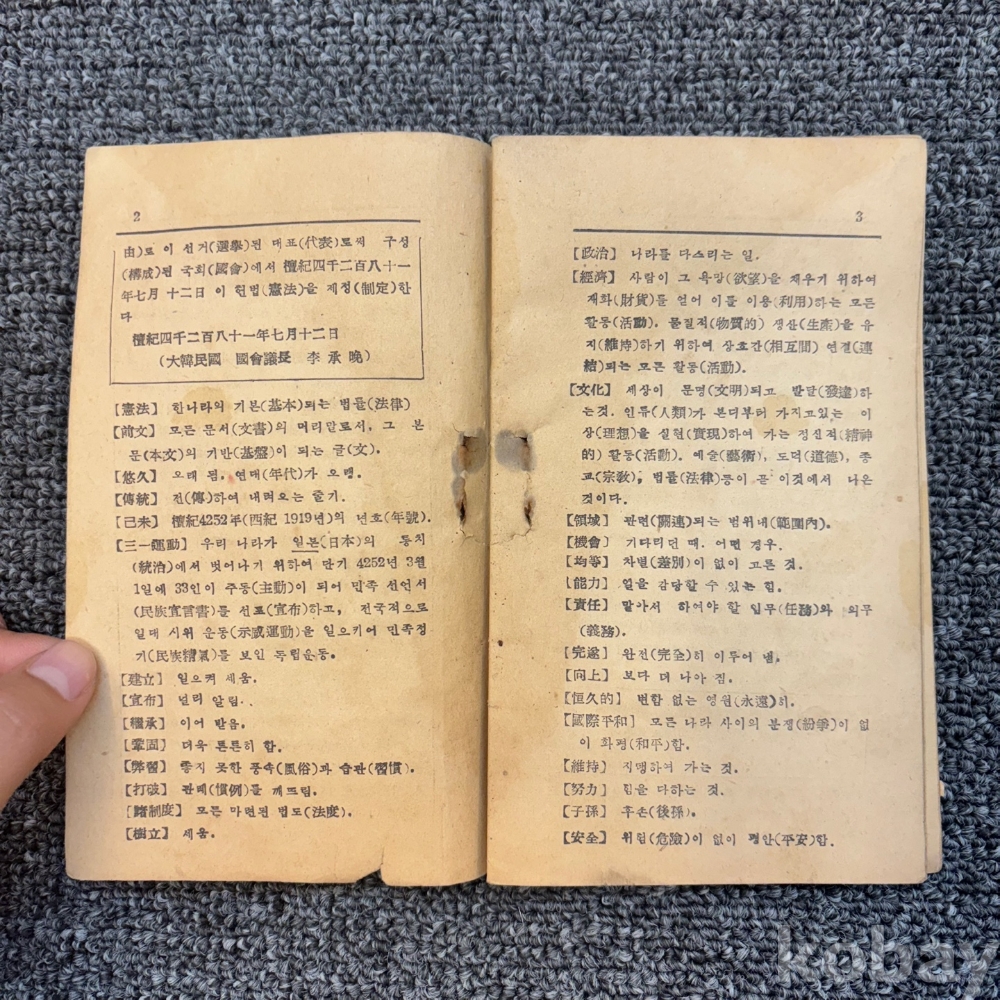 2
由)로 이 선거(選擧)된 대표(代表)로써 구성
(構成)된 국회(國會)에서 檀紀四千二百八十一
年七月 十二日 이 헌법(憲法)을 제정(制定)한
다
檀紀四千二百八十一年七月十二日
(大韓民國 國會議長 李承晩)
【憲法】 한나라의 기본(基本)되는 법률(法律)
【前文】 모든 문서(文書)의 머리말로서, 그 본
문(本文)의 기반(基盤)이 되는 글(文).
【悠久】 오래 됨, 연대(年代)가 오램.
【傳統】 전(傳)하여 내려오는 줄기.
【己未】 檀紀4252年(西紀 1919년)의 년호(年號).
【三一運動】 우리 나라가 일본(日本)의 통치
(統治)에서 벗어나기 위하여 단기 4252년 3월
1일에 33인이 주동(主動)이 되어 민족 선언서
(民族宣言書)를 선포(宣布)하고, 전국적으로
일대 시위 운동(示威運動)을 일으키어 민족정
기(民族精氣)를 보인 독립운동.
【建立】 일으켜 세움.
【宣布】 널리 알림.
【繼承】 이어 받음.
【鞏固】 더욱 튼튼히 함.
【弊習】 좋지 못한 풍속(風俗)과 습관(習慣).
【打破】 관례(慣例)를 깨뜨림.
【諸制度】 모든 마련된 법도(法度).
【樹立】 세움.
3
【政治】 나라를 다스리는 일.
【經濟】 사람이 그 욕망(欲望)을 채우기 위하여
재화(財貨)를 얻어 이를 이용(利用)하는 모든
활동(活動). 물질적(物質的) 생산(生產)을 유
지(維持)하기 위하여 상호간(相互間) 연결(連
結)되는 모든 활동(活動).
【文化】 세상이 문명(文明)되고 발달(發達)하
는것. 인류(人類)가 본디부터 가지고있는 이
상(理想)을 실현(實現)하여 가는 정신적(精神
的) 활동(活動). 예술(藝術), 도덕(道德), 종
교(宗敎), 법률(法律)등이 곧 이것에서 나온
것이다.
【領域】 관련(關連)되는 범위내(範圍內).
【機會】 기다리던 때. 어떤 경우.
【均等】 차별(差別)이 없이 고른 것.
【能力】 일을 감당할 수 있는 힘.
【責任】 맡아서 하여야 할 임무(任務)와 의무
(義務).
【完遂】 완전(完全)히 이루어 냄.
【向上】 보다 더 나아 짐.
【恒久的】 변함 없는 영원(永遠)히.
【國際平和】 모든 나라 사이의 분쟁(紛爭)이 없
이 화평(和平)함.
【維持】 지탱하여 가는 것.
【努力】 힘을 다하는 것.
【子孫】 후손(後孫).
【安全】 위험(危險)이 없이 평안(平安)함.
kobay